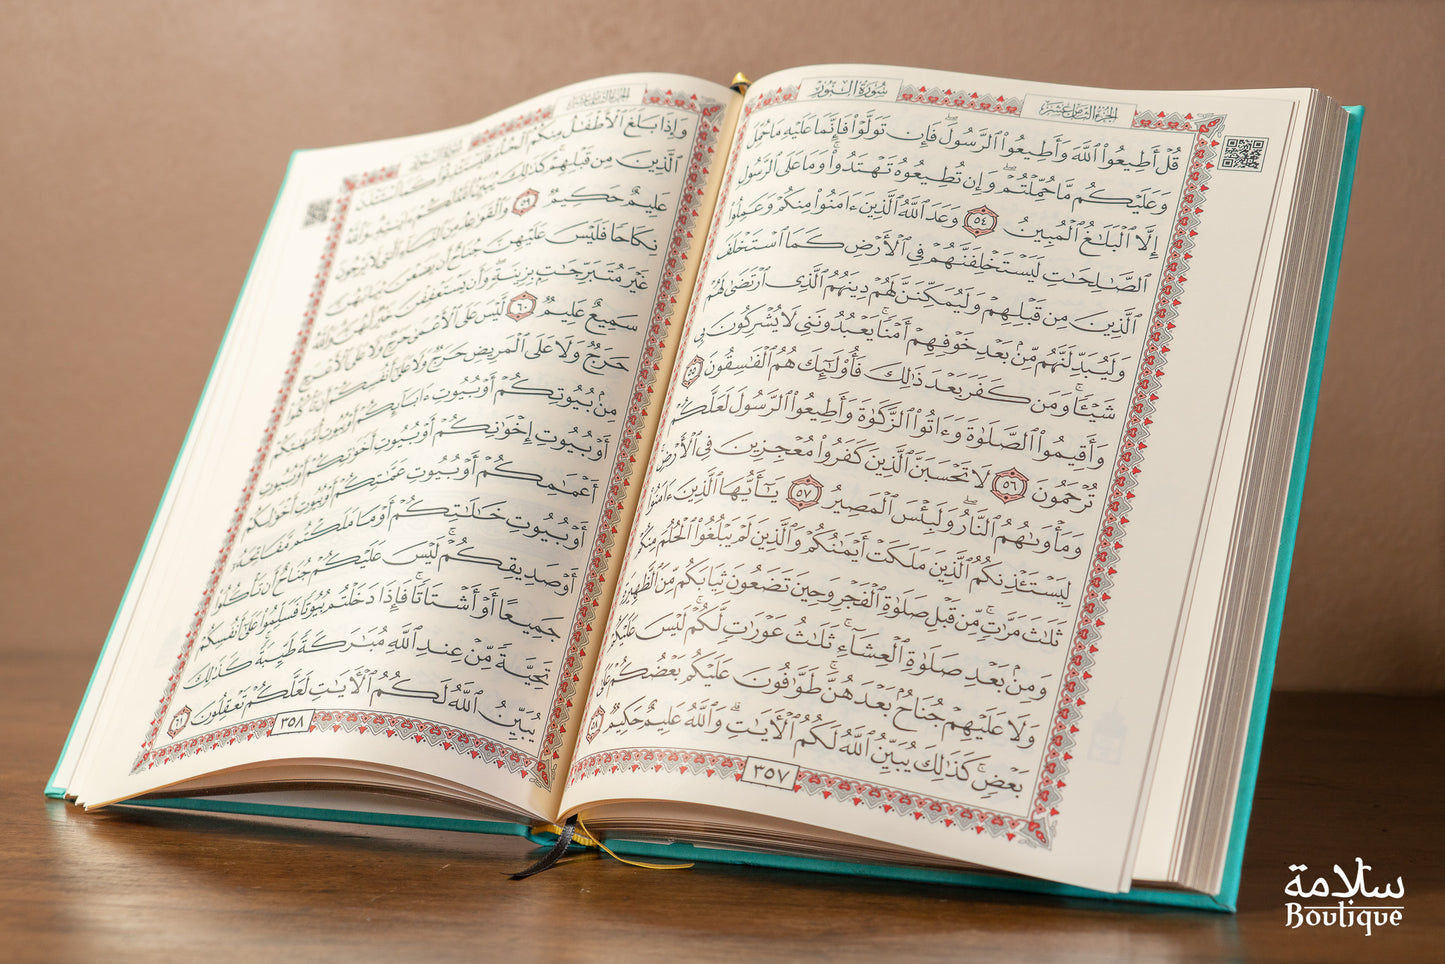 سُورَةُ النُّورِ
الجُزءُ الثَّامِنَ عَشَرَ
قُلْ أَطِيعُوا۟ ٱللَّهَ وَأَطِيعُوا۟ ٱلرَّسُولَ ۖ فَإِن تَوَلَّوْا۟ فَإِنَّمَا عَلَيْهِ مَا حُمِّلَ
وَعَلَيْكُم مَّا حُمِّلْتُمْ ۖ وَإِن تُطِيعُوهُ تَهْتَدُوا۟ ۚ وَمَا عَلَى ٱلرَّسُولِ
إِلَّا ٱلْبَلَـٰغُ ٱلْمُبِينُ ٥٤ وَعَدَ ٱللَّهُ ٱلَّذِينَ ءَامَنُوا۟ مِنكُمْ وَعَمِلُوا۟
ٱلصَّـٰلِحَـٰتِ لَيَسْتَخْلِفَنَّهُمْ فِى ٱلْأَرْضِ كَمَا ٱسْتَخْلَفَ
ٱلَّذِينَ مِن قَبْلِهِمْ وَلَيُمَكِّنَنَّ لَهُمْ دِينَهُمُ ٱلَّذِى ٱرْتَضَىٰ لَهُمْ
وَلَيُبَدِّلَنَّهُم مِّنۢ بَعْدِ خَوْفِهِمْ أَمْنًا ۚ يَعْبُدُونَنِى لَا يُشْرِكُونَ بِى
شَيْـًٔا ۚ وَمَن كَفَرَ بَعْدَ ذَٰلِكَ فَأُو۟لَـٰٓئِكَ هُمُ ٱلْفَـٰسِقُونَ ٥٥
وَأَقِيمُوا۟ ٱلصَّلَوٰةَ وَءَاتُوا۟ ٱلزَّكَوٰةَ وَأَطِيعُوا۟ ٱلرَّسُولَ لَعَلَّكُمْ
تُرْحَمُونَ ٥٦ لَا تَحْسَبَنَّ ٱلَّذِينَ كَفَرُوا۟ مُعْجِزِينَ فِى ٱلْأَرْضِ ۚ
وَمَأْوَىٰهُمُ ٱلنَّارُ ۖ وَلَبِئْسَ ٱلْمَصِيرُ ٥٧ يَـٰٓأَيُّهَا ٱلَّذِينَ ءَامَنُوا۟
لِيَسْتَـْٔذِنكُمُ ٱلَّذِينَ مَلَكَتْ أَيْمَـٰنُكُمْ وَٱلَّذِينَ لَمْ يَبْلُغُوا۟ ٱلْحُلُمَ مِنكُمْ
ثَلَـٰثَ مَرَّٰتٍ ۚ مِّن قَبْلِ صَلَوٰةِ ٱلْفَجْرِ وَحِينَ تَضَعُونَ ثِيَابَكُم مِّنَ ٱلظَّهِيرَةِ
وَمِنۢ بَعْدِ صَلَوٰةِ ٱلْعِشَآءِ ۚ ثَلَـٰثُ عَوْرَٰتٍ لَّكُمْ ۚ لَيْسَ عَلَيْكُمْ
وَلَا عَلَيْهِمْ جُنَاحٌۢ بَعْدَهُنَّ ۚ طَوَّٰفُونَ عَلَيْكُم بَعْضُكُمْ عَلَىٰ
بَعْضٍ ۚ كَذَٰلِكَ يُبَيِّنُ ٱللَّهُ لَكُمُ ٱلْـَٔايَـٰتِ ۗ وَٱللَّهُ عَلِيمٌ حَكِيمٌ ٥٨
٣٥٧
الجُزءُ الثَّامِنَ عَشَرَ
وَإِذَا بَلَغَ ٱلْأَطْفَـٰلُ مِنكُمُ ٱلْحُلُمَ فَلْيَسْتَـْٔذِنُوا۟ كَمَا ٱسْتَـْٔذَنَ
ٱلَّذِينَ مِن قَبْلِهِمْ ۚ كَذَٰلِكَ يُبَيِّنُ ٱللَّهُ لَكُمْ ءَايَـٰتِهِۦ ۗ وَٱللَّهُ
عَلِيمٌ حَكِيمٌ ٥٩ وَٱلْقَوَٰعِدُ مِنَ ٱلنِّسَآءِ ٱلَّـٰتِى لَا يَرْجُونَ
نِكَاحًا فَلَيْسَ عَلَيْهِنَّ جُنَاحٌ أَن يَضَعْنَ ثِيَابَهُنَّ
غَيْرَ مُتَبَرِّجَـٰتٍۭ بِزِينَةٍ ۖ وَأَن يَسْتَعْفِفْنَ خَيْرٌ لَّهُنَّ ۗ وَٱللَّهُ
سَمِيعٌ عَلِيمٌ ٦٠ لَّيْسَ عَلَى ٱلْأَعْمَىٰ حَرَجٌ وَلَا عَلَى ٱلْأَعْرَجِ
حَرَجٌ وَلَا عَلَى ٱلْمَرِيضِ حَرَجٌ وَلَا عَلَىٰٓ أَنفُسِكُمْ أَن تَأْكُلُوا۟
مِنۢ بُيُوتِكُمْ أَوْ بُيُوتِ ءَابَآئِكُمْ أَوْ بُيُوتِ أُمَّهَـٰتِكُمْ
أَوْ بُيُوتِ إِخْوَٰنِكُمْ أَوْ بُيُوتِ أَخَوَٰتِكُمْ أَوْ بُيُوتِ
أَعْمَـٰمِكُمْ أَوْ بُيُوتِ عَمَّـٰتِكُمْ أَوْ بُيُوتِ أَخْوَٰلِكُمْ
أَوْ بُيُوتِ خَـٰلَـٰتِكُمْ أَوْ مَا مَلَكْتُم مَّفَاتِحَهُۥٓ
أَوْ صَدِيقِكُمْ ۚ لَيْسَ عَلَيْكُمْ جُنَاحٌ أَن تَأْكُلُوا۟
جَمِيعًا أَوْ أَشْتَاتًا ۚ فَإِذَا دَخَلْتُم بُيُوتًا فَسَلِّمُوا۟ عَلَىٰٓ أَنفُسِكُمْ
تَحِيَّةً مِّنْ عِندِ ٱللَّهِ مُبَـٰرَكَةً طَيِّبَةً ۚ كَذَٰلِكَ
يُبَيِّنُ ٱللَّهُ لَكُمُ ٱلْـَٔايَـٰتِ لَعَلَّكُمْ تَعْقِلُونَ ٦١
٣٥٨
سلامة
Boutique